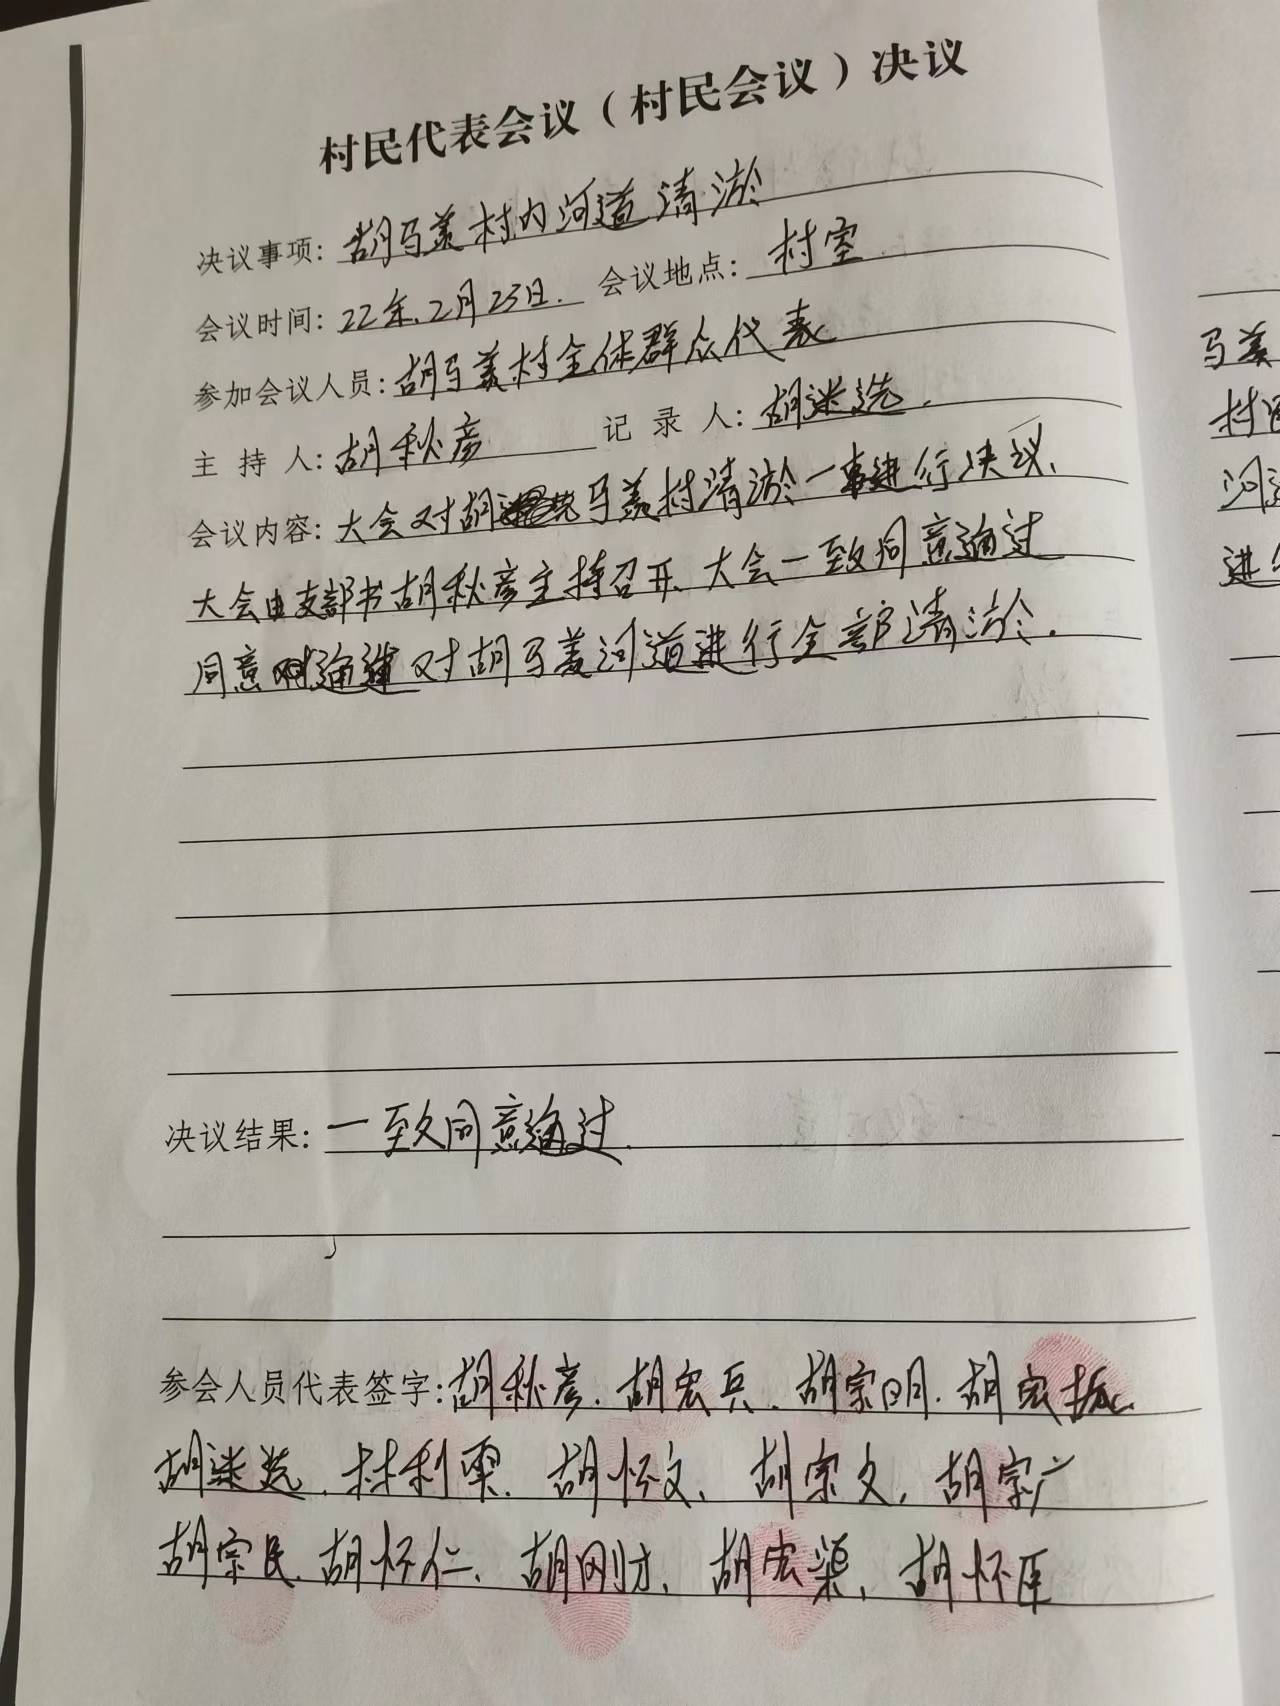 村民代表会议（村民会议）决议
决议事项：胡马羡村内河道清淤
会议时间：22年.2月23日. 会议地点：村室
参加会议人员：胡马羡村全体群众代表
主持人：胡秋彦 记录人：胡迷选.
会议内容：大会对胡马羡村清淤一事进行决议、
大会由支部书胡秋彦主持召开、大会一致同意通过
同意对胡马羡河道进行全部清淤.
决议结果：一致同意通过.
参会人员代表签字：胡秋彦.胡宏兵.胡宗明.胡宏振
胡迷选.林利霞.胡怀文、胡宗文，胡宗广
胡宗民.胡怀仁、胡刚才、胡宏渠、胡怀臣
马羡
村
河道
进行